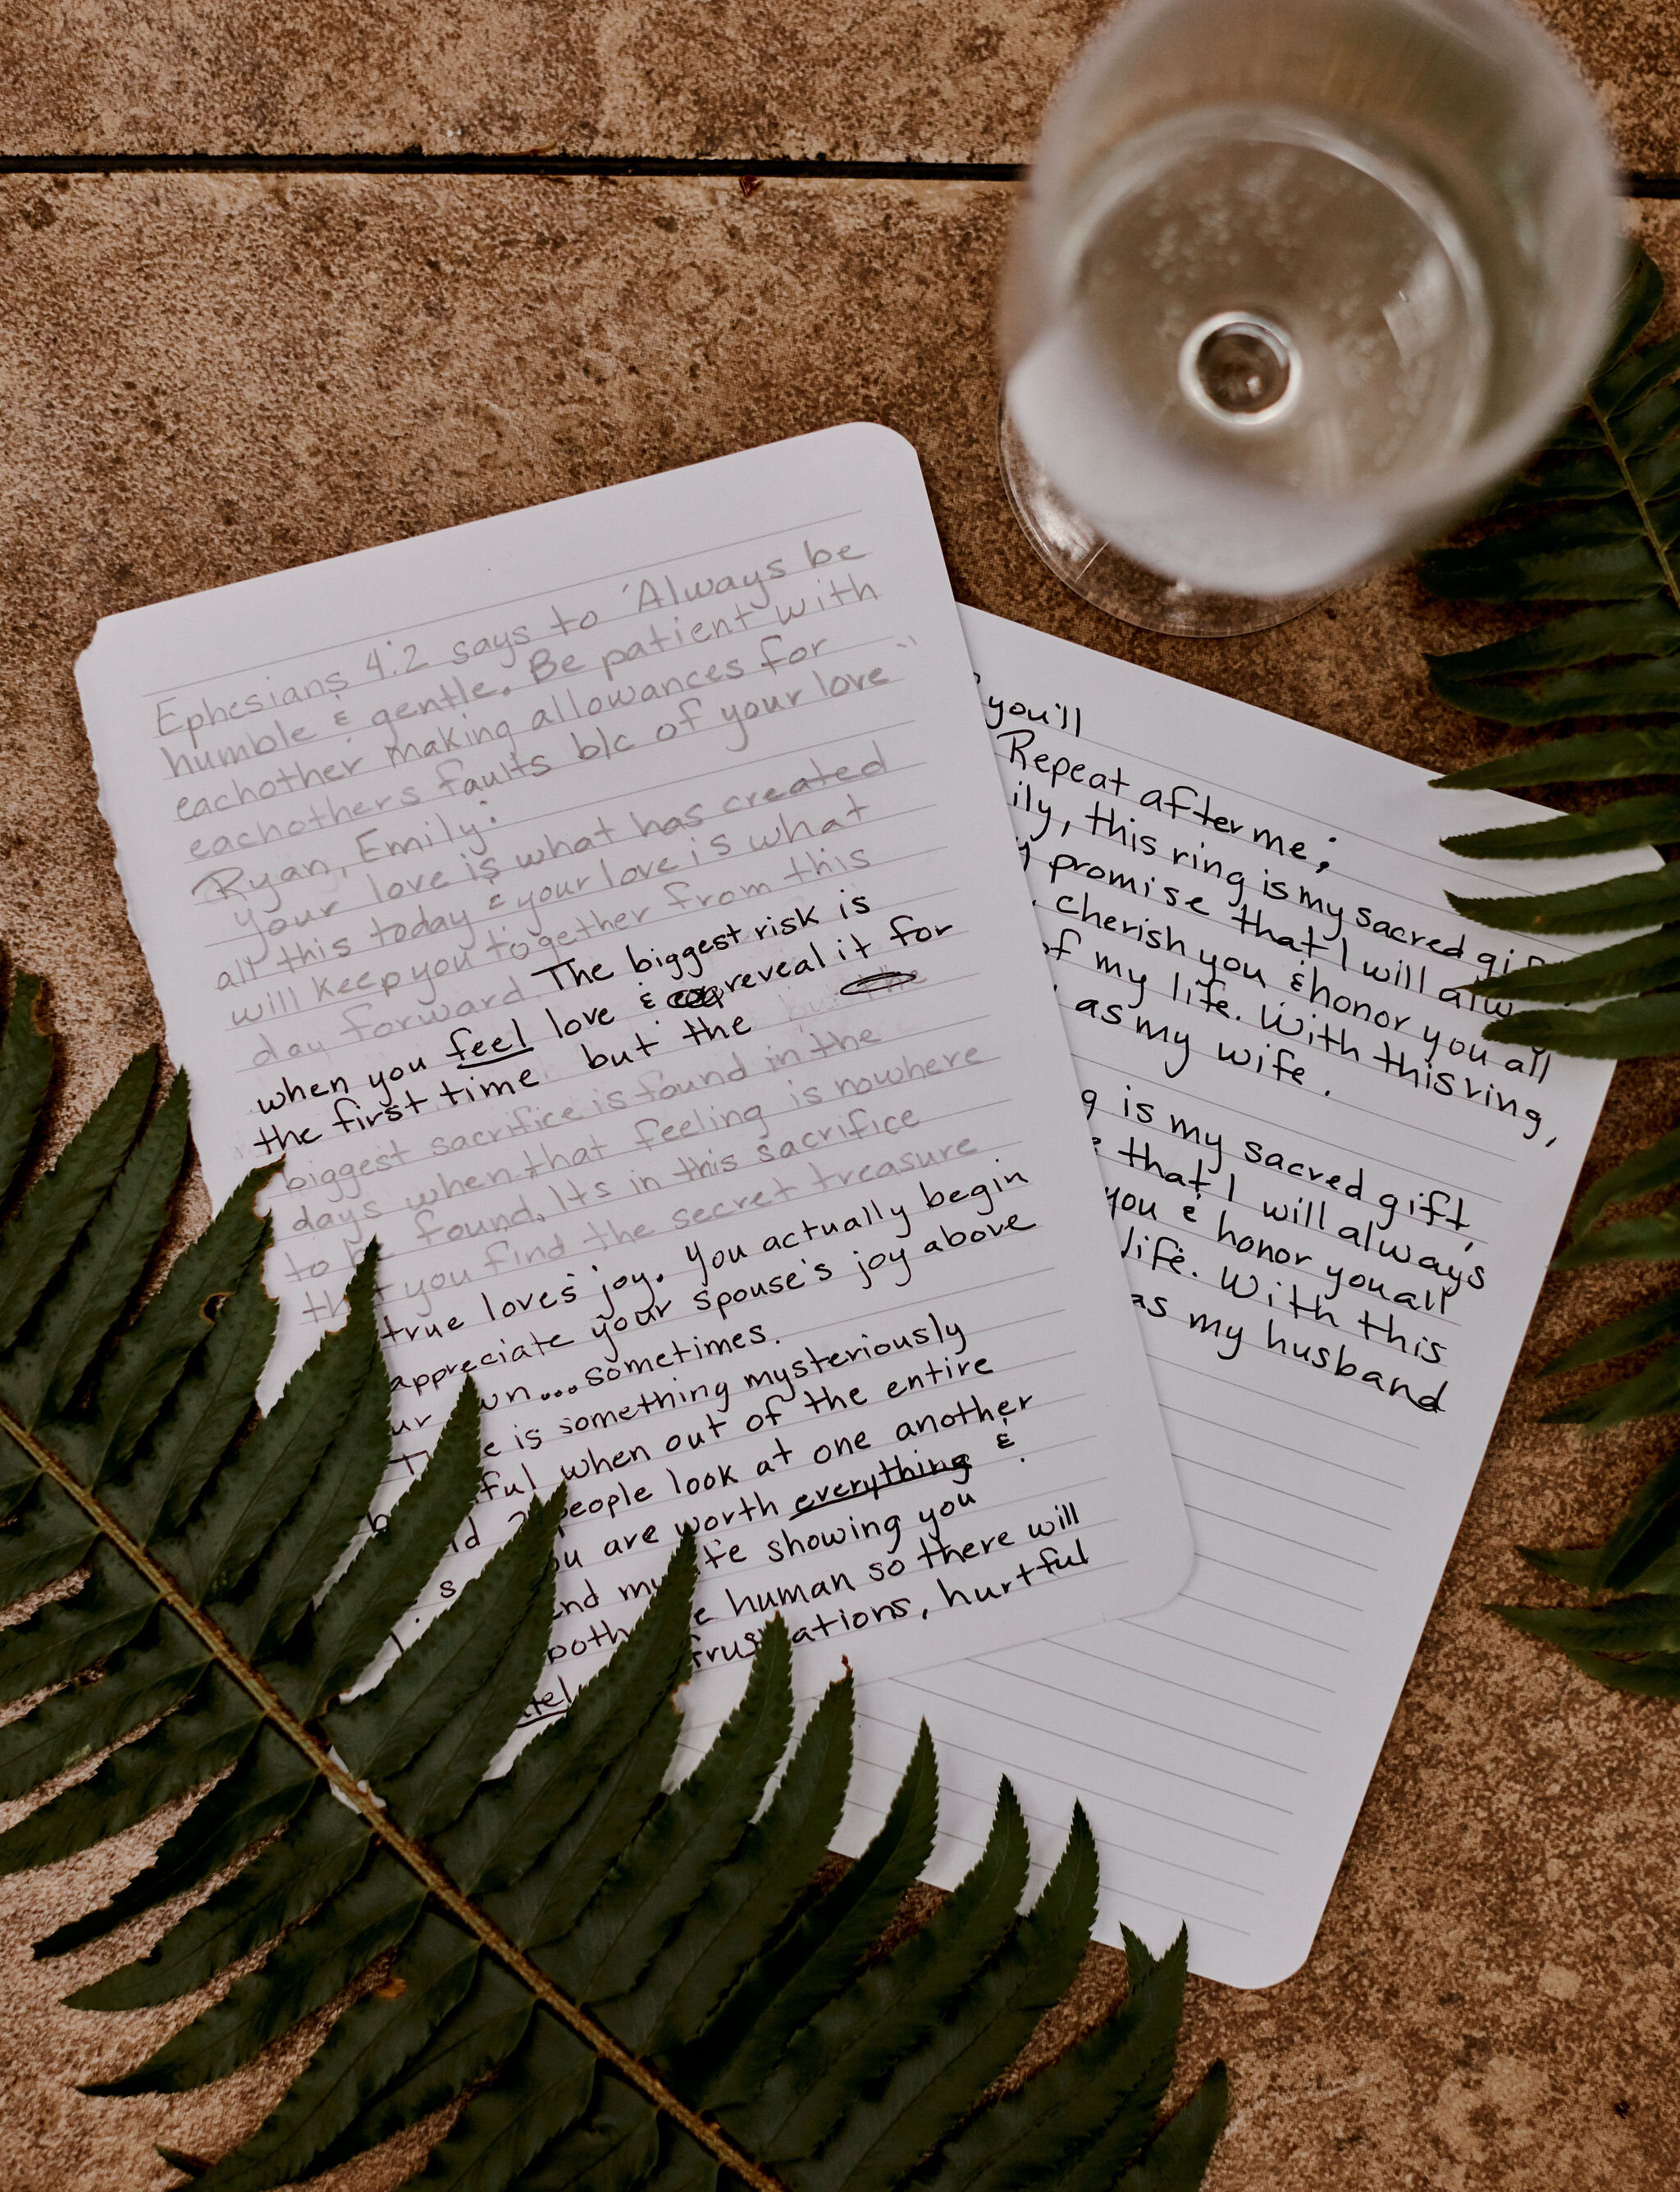 Ephesians 4:2 says to 'Always be
humble & gentle. Be patient with
eachother making allowances for
eachothers faults b/c of your love"
Ryan, Emily:
your love is what has created
all this today & your love is what
will keep you together from this
day forward. The biggest risk is
when you feel love & reveal it for
the first time but the but the
biggest sacrifice is found in the
days when that feeling is nowhere
to be found. Its in this sacrifice
that you find the secret treasure
true loves joy. You actually begin
appreciate your spouse's joy above
ur own...sometimes.
is something mysteriously
ful when out of the entire
people look at one another
are worth everything &
my showing you
human so there will
frustrations, hurtful
you'll
Repeat after me;
ily, this ring is my sacred gif
promise that I will alw
cherish you & honor you all
of my life. With this ring,
as my wife.
g is my sacred gift,
that I will always
you & honor you all
life. With this
as my husband